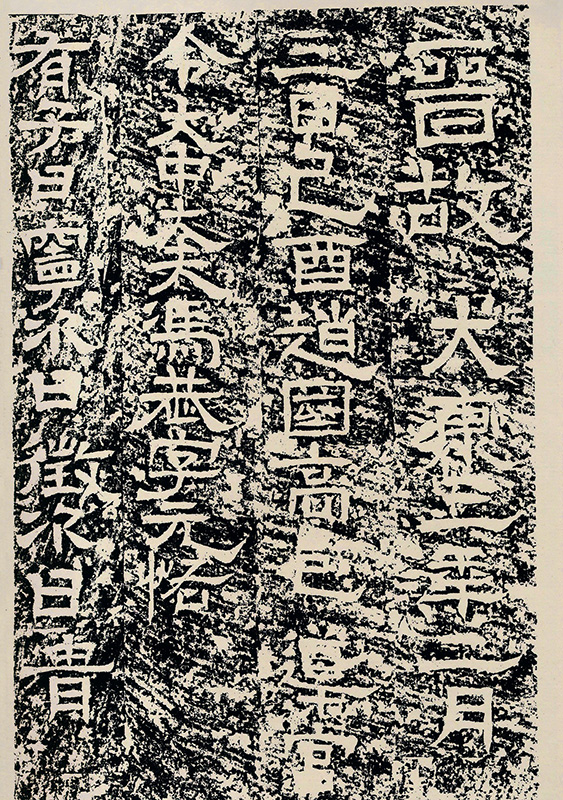 晉故大康三年二月
三日己酉趙國高邑導官
令大中大夫馮恭字元恪
有子曰寧次曰徵次曰貴